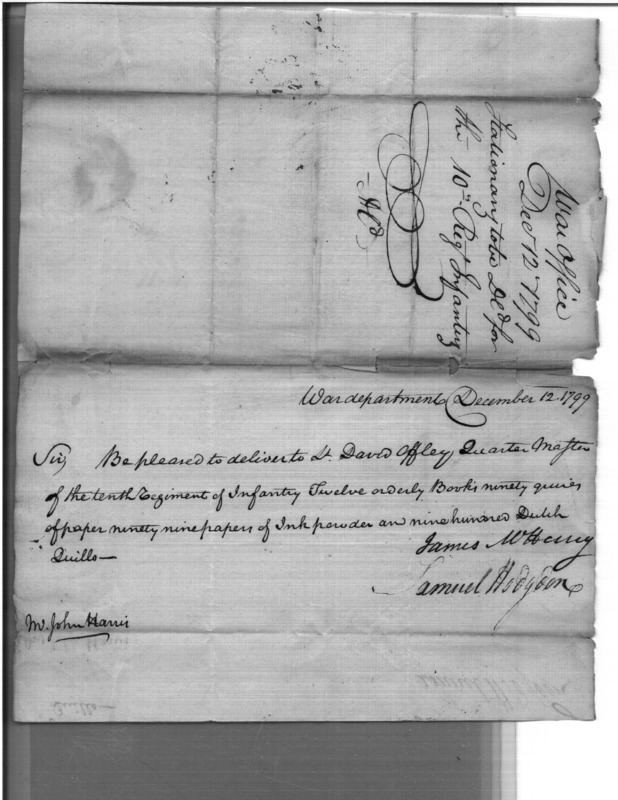 War Office
Dec 12th 1799
Stationary to be Dld for
the 10th Regt Infantry
War department December 12. 1799
Sir, Be pleased to deliver to Lt. David Offley Quarter Master
of the tenth Regiment of Infantry Twelve orderly Books ninety quires
of paper ninety nine papers of Ink powder an nine hundred Dutch
Quills—
James McHenry
Samuel Hodgdon
Mr. John Harris